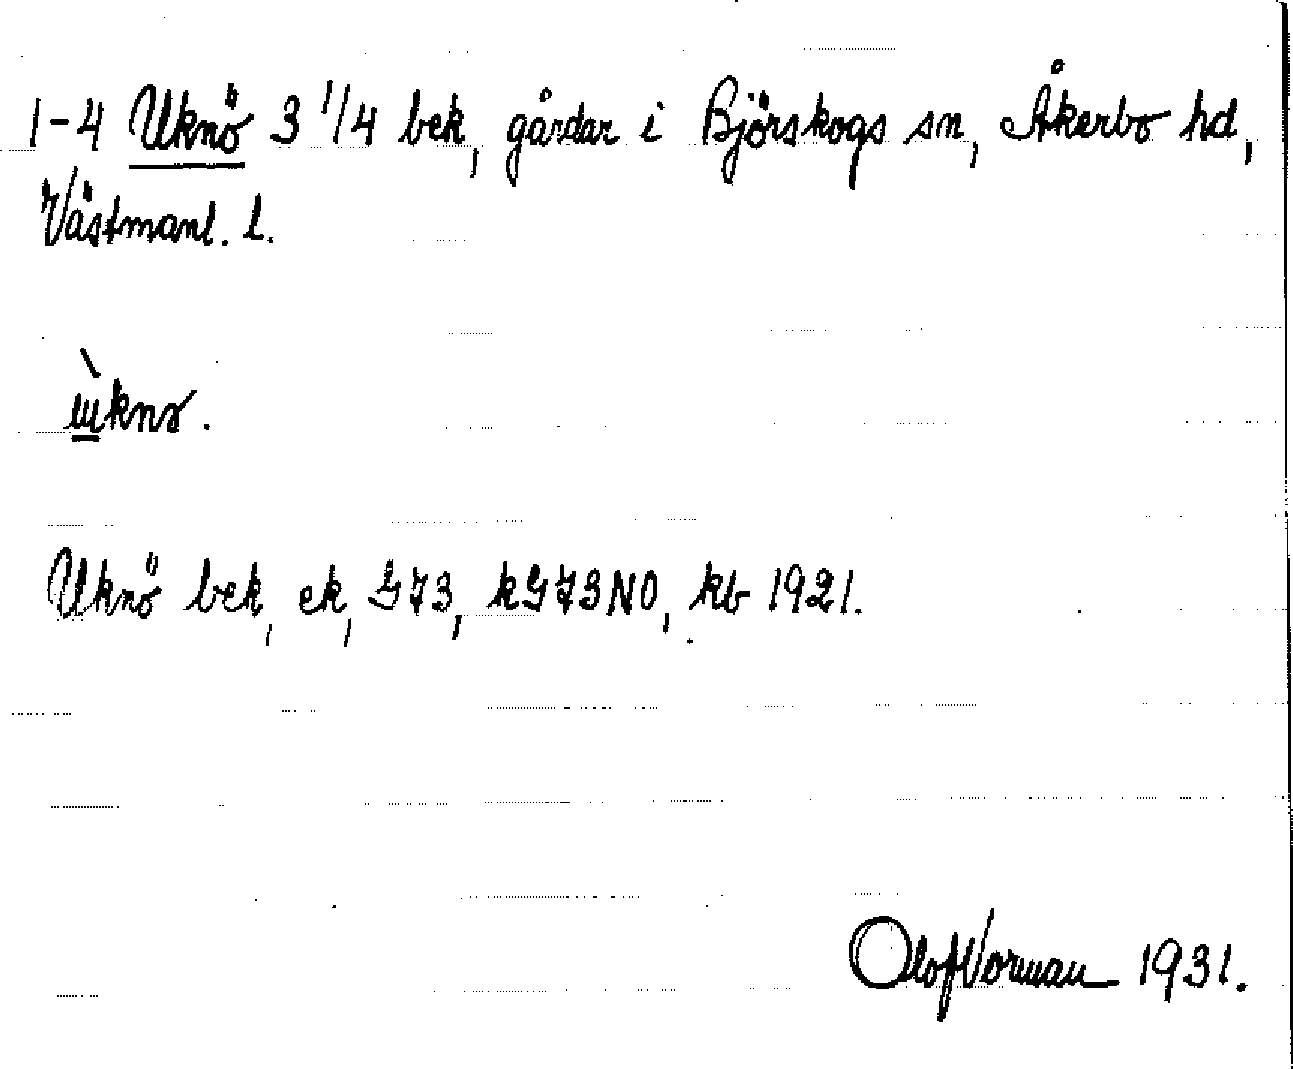 1-4 Uknö 3 1/4 bek, gårdar i Björskogs sn, Åkerbo hd,
Västmanl. l.
Uknö bek, ek, G73, kG73NO, kb 1921.
Olof Vorman 1931.